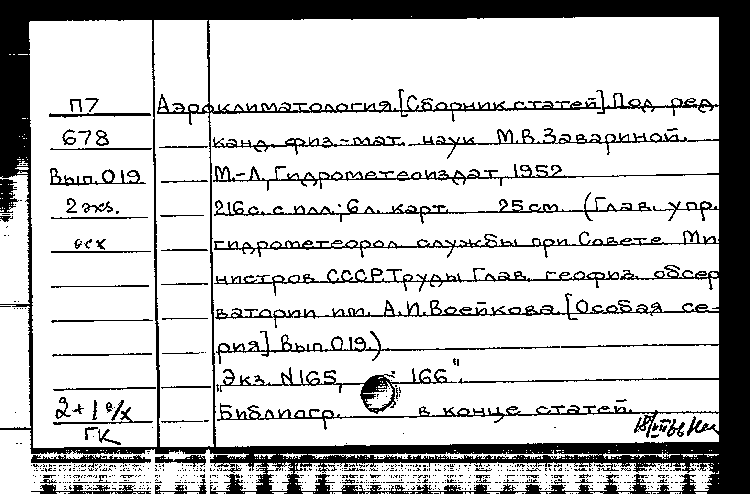 П7 Аэроклиматология. [Сборник статей] Под ред.
678 канд. физ.-мат. наук М.В.Завариной.
Вып. 019 М.-Л., Гидрометеоиздат, 1952
2 экз. 216с. с илл.; 6л. карт 25cm. (Глав. упр.
гидрометеорол службы при Совете Ми-
нистров СССР. Труды Глав. геофиз. обсер
ватории им. А.И.Воейкова. [Особая се-
рия] Вып. 019.)
"Экз. N165, 166".
2+1 о/х Библиогр. в конце статей.
ГК